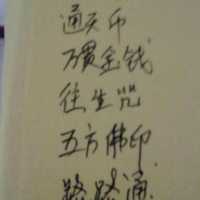 通天币
万贯金钱
往生咒
五方佛印
路路通